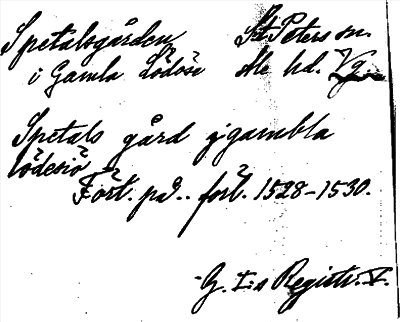 Spetalsgården St. Peters sn.
i Gamla Lödöse Ale hd. Vg.
Spetals gård j gambla
lödesiö
Fört. på.. forl. 1528-1530.
G. I:s Registr. V.